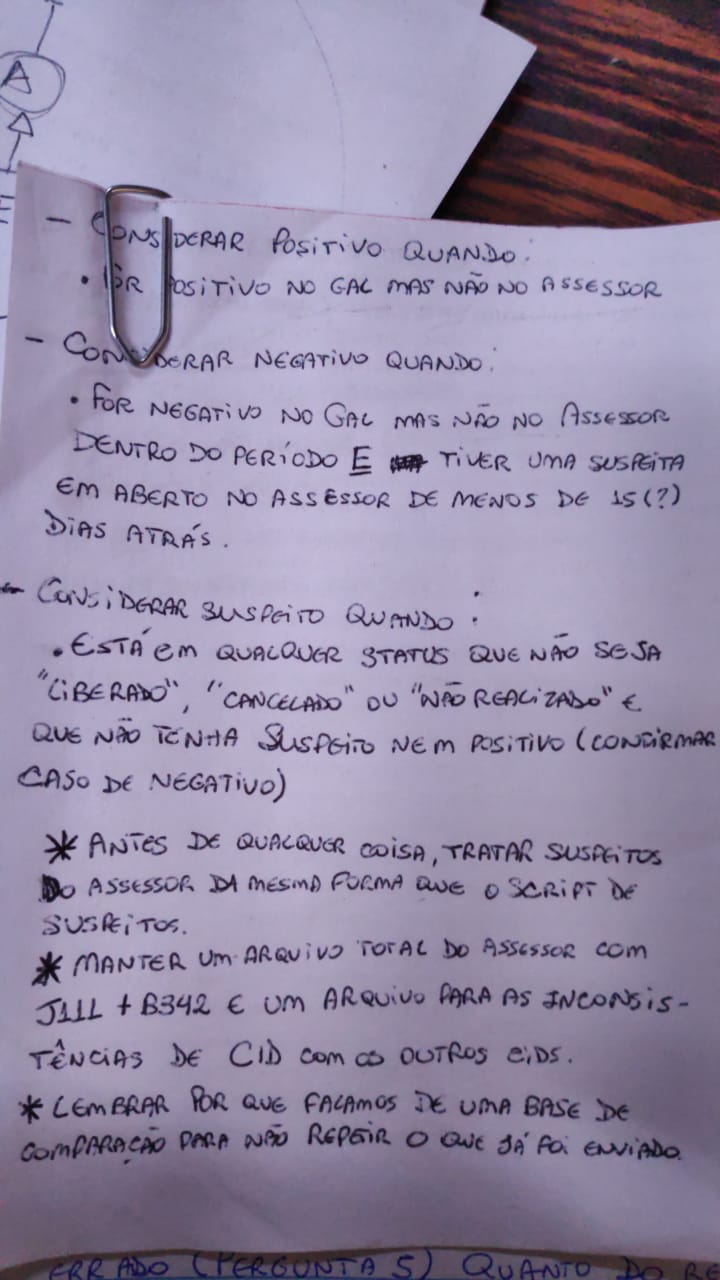 A
- CONSIDERAR POSITIVO QUANDO:
• FOR POSITIVO NO GAL MAS NÃO NO ASSESSOR
- CONSIDERAR NEGATIVO QUANDO:
• FOR NEGATIVO NO GAL MAS NÃO NO ASSESSOR
DENTRO DO PERÍODO E TIVER UMA SUSPEITA
EM ABERTO NO ASSESSOR DE MENOS DE 15(?)
DIAS ATRÁS.
- CONSIDERAR SUSPEITO QUANDO:
• ESTÁ EM QUALQUER STATUS QUE NÃO SEJA
"LIBERADO", "CANCELADO" OU "NÃO REALIZADO" E
QUE NÃO TENHA SUSPEITO NEM POSITIVO (CONFIRMAR
CASO DE NEGATIVO)
* ANTES DE QUALQUER COISA, TRATAR SUSPEITOS
DO ASSESSOR DA MESMA FORMA QUE O SCRIPT DE
SUSPEITOS.
* MANTER UM ARQUIVO TOTAL DO ASSESSOR COM
J111 + B342 E UM ARQUIVO PARA AS INCONSIS-
TÊNCIAS DE CID COM OS OUTROS CIDS.
* LEMBRAR POR QUE FALAMOS DE UMA BASE DE
COMPARAÇÃO PARA NÃO REPEIR O QUE JÁ FOI ENVIADO.
ERRADO (PERGUNTA 5) QUANTO DO RE